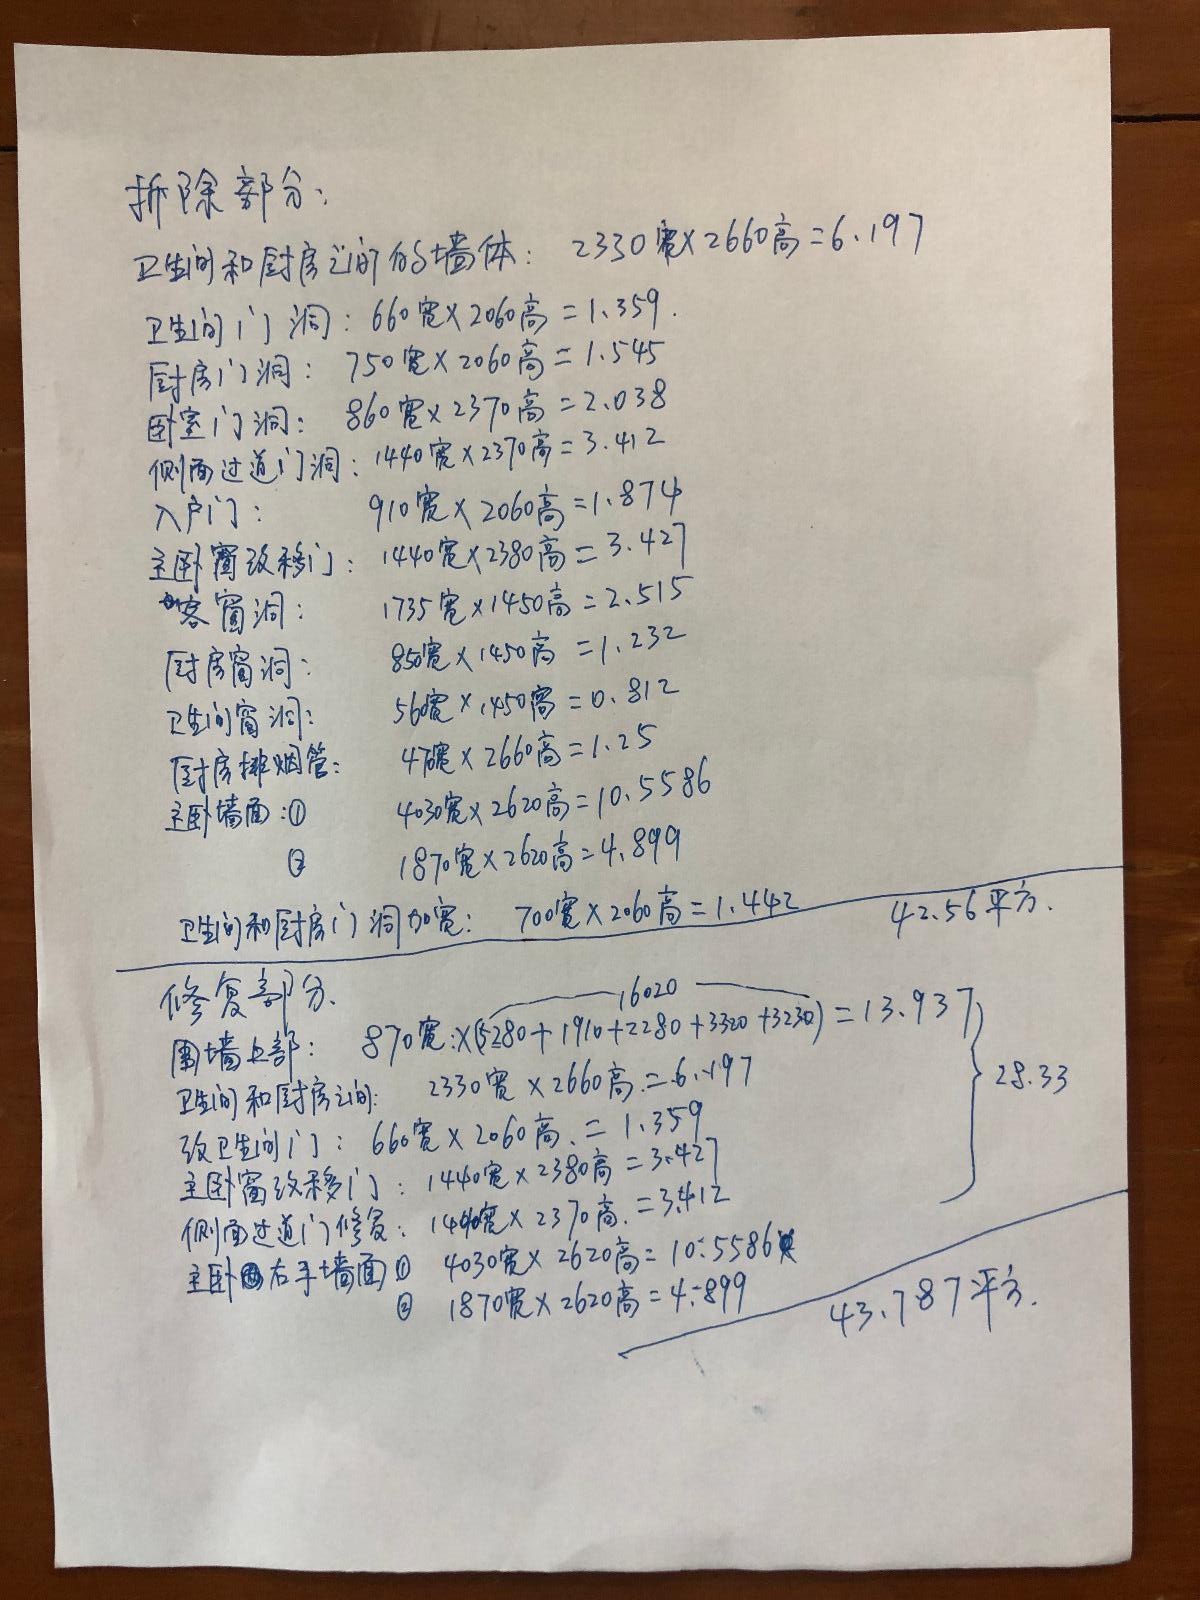 拆除部分:
卫生间和厨房之间的墙体: 2330宽×2660高=6.197
卫生间门洞: 660宽×2060高=1.359.
厨房门洞: 750宽×2060高=1.545
卧室门洞: 860宽×2370高=2.038
侧面过道门洞: 1440宽×2370高=3.412
入户门: 910宽×2060高=1.874
主卧窗改移门: 1440宽×2380高=3.427
客窗洞: 1735宽×1450高=2.515
厨房窗洞: 850宽×1450高=1.232
卫生间窗洞: 560宽×1450高=0.812
厨房排烟管: 470宽×2660高=1.25
主卧墙面:① 4030宽×2620高=10.5586
② 1870宽×2620高=4.899
卫生间和厨房门洞加宽: 700宽×2060高=1.442 42.56平方.
修复部分.
16020
围墙上部: 870宽:×(5280+1910+2280+3320+3230)=13.937
卫生间和厨房之间: 2330宽×2660高=6.197 28.33
改卫生间门: 660宽×2060高.=1.359
主卧窗改移门: 1440宽×2380高=3.427
侧面过道门修复: 1440宽×2370高.=3.412
主卧右手墙面① 4030宽×2620高=10.5586
② 1870宽×2620高=4.899
43.787平方.